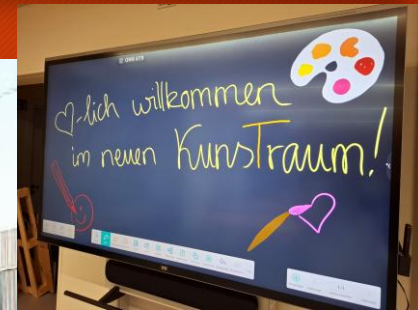 ♡-lich willkommen
im neuen KunsTraum!